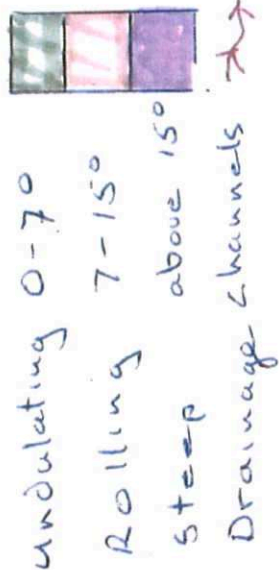 Undulating 0-7°
Rolling 7-15°
Steep above 15°
Drainage channels